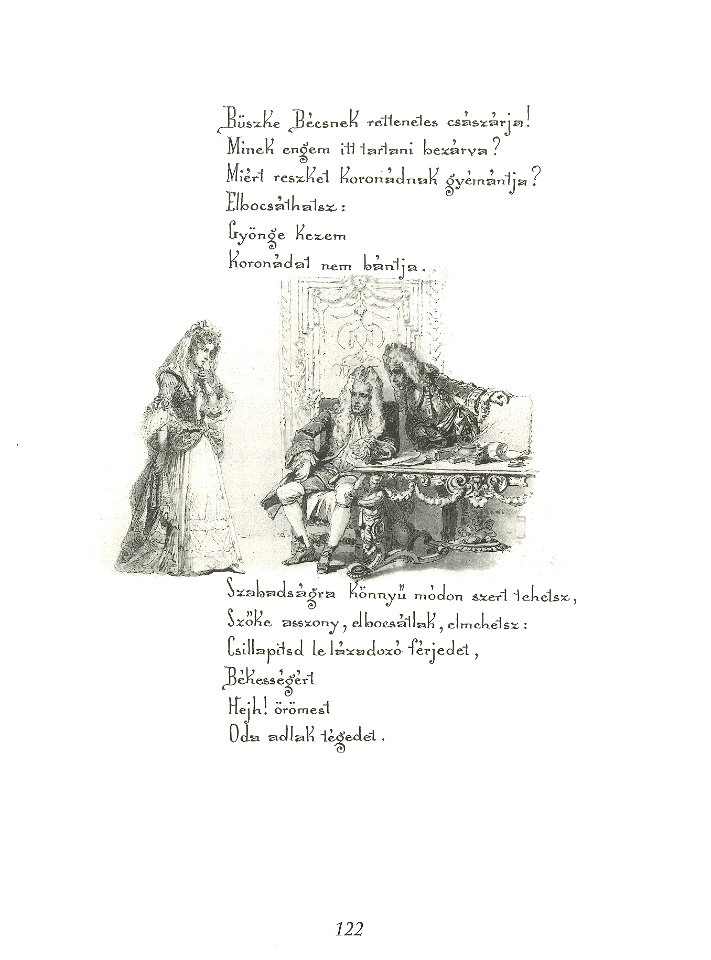 Büszke Bécsnek rettenetes császárja!
Minek engem itt tartani bezárva?
Miért reszket koronádnak gyémántja?
Elbocsáthatsz:
Gyönge kezem
Koronádat nem bántja.
Szabadságra könnyű módon szert tehetsz,
Szőke asszony, elbocsátlak, elmehetsz:
Csillapitsd le lázadozó férjedet,
Békességért
Hejh! örömest
Oda adlak tégedet.
122